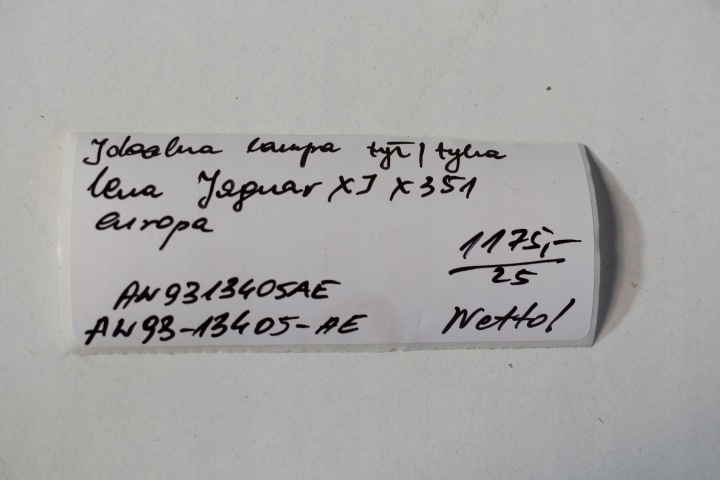 Idealna lampa tył / tylna
lewa Jaguar XJ X351
europa
1175,-
25
AW9313405AE
AW93-13405-AE
Netto!